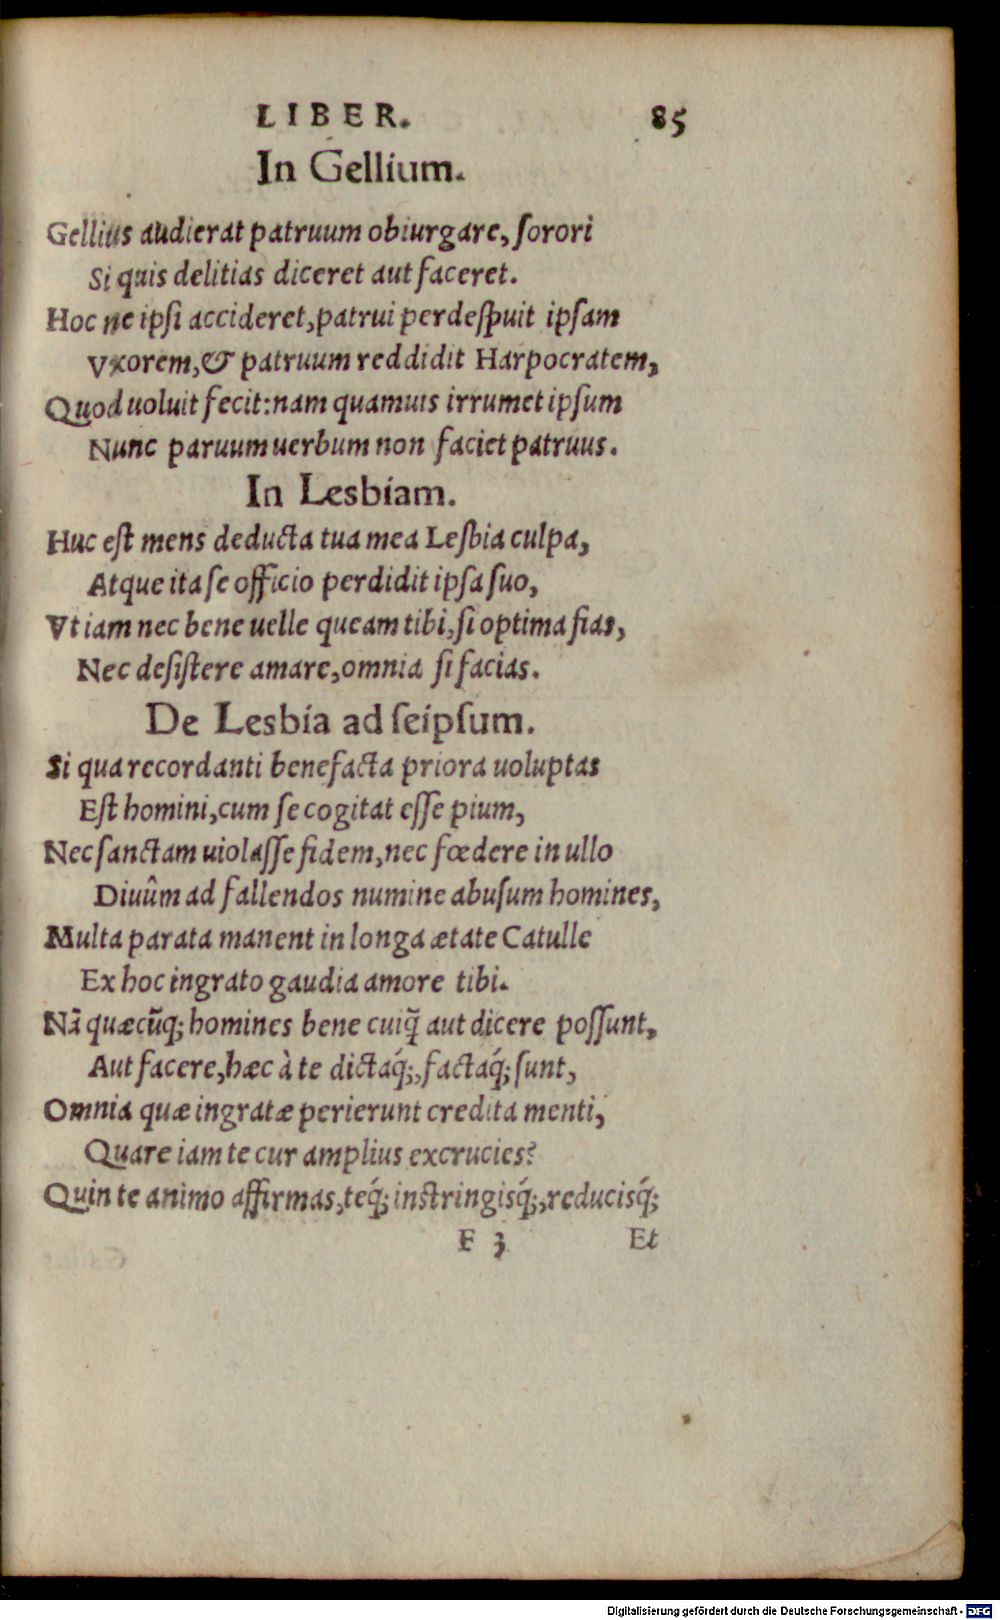 LIBER. 85
In Gellium.
Gellius audierat patruum obiurgare, ſorori
Si quis delitias diceret aut faceret.
Hoc ne ipſi accideret, patrui perdeſpuit ipſam
Vxorem, & patruum reddidit Harpocratem,
Quod uoluit fecit: nam quamuis irrumet ipſum
Nunc paruum uerbum non faciet patruus.
In Lesbiam.
Huc eſt mens deducta tua mea Lesbia culpa,
Atque ita ſe officio perdidit ipſa ſuo,
Vt iam nec bene uelle queam tibi, ſi optima fias,
Nec deſiſtere amare, omnia ſi facias.
De Lesbia ad ſeipſum.
Si qua recordanti benefacta priora uoluptas
Eſt homini, cum ſe cogitat eſſe pium,
Nec ſanctam uiolaſſe fidem, nec fœdere in ullo
Diuûm ad fallendos numine abuſum homines,
Multa parata manent in longa ætate Catulle
Ex hoc ingrato gaudia amore tibi.
Nã quæcũq; homines bene cuiq̃ aut dicere poſſunt,
Aut facere, hæc à te dictaq́;, factaq́; ſunt,
Omnia quæ ingratæ perierunt credita menti,
Quare iam te cur amplius excrucies?
Quin te animo affirmas, teq́; inſtringisq́;, reducisq́;
F 3 Et
Digitalisierung gefördert durch die Deutsche Forschungsgemeinschaft - DFG